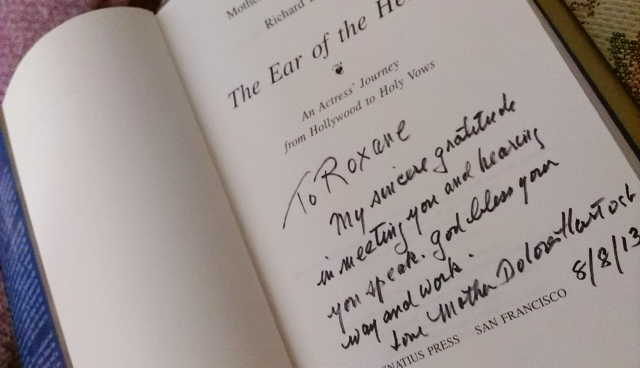 Mothe
Richard
The Ear of the He
An Actress' Journey
from Hollywood to Holy Vows
To Roxane
My sincere gratitude
in meeting you and hearing
you speak. God bless your
way and work.
Love Mother Dolores Hart OSB
8/8/13
NATIUS PRESS SAN FRANCISCO